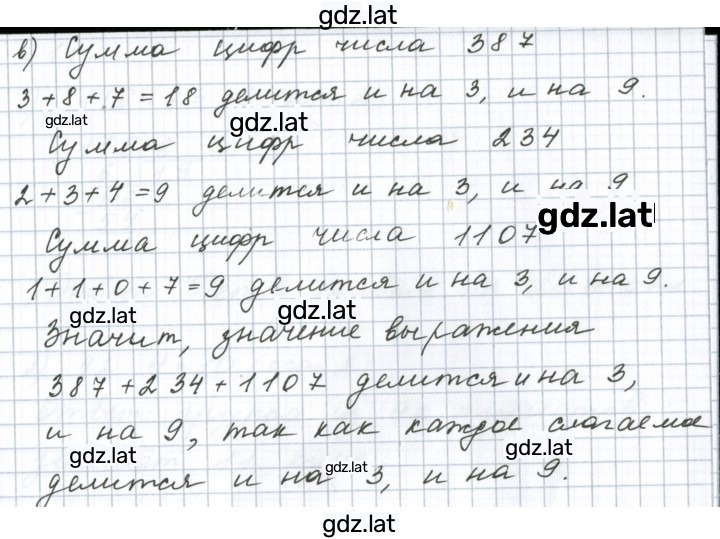 gdz.lat
в) Сумма цифр числа 387
3+8+7=18 делится и на 3, и на 9.
gdz.lat gdz.lat
Сумма цифр числа 234
2+3+4=9 делится и на 3, и на 9
gdz.lat
Сумма цифр числа 1107
1+1+0+7=9 делится и на 3, и на 9.
gdz.lat gdz.lat
Значит, значение выражения
387+234+1107 делится и на 3,
и на 9, так как каждое слагаемое
gdz.lat gdz.lat gdz.lat
делится и на 3, и на 9.
gdz.lat